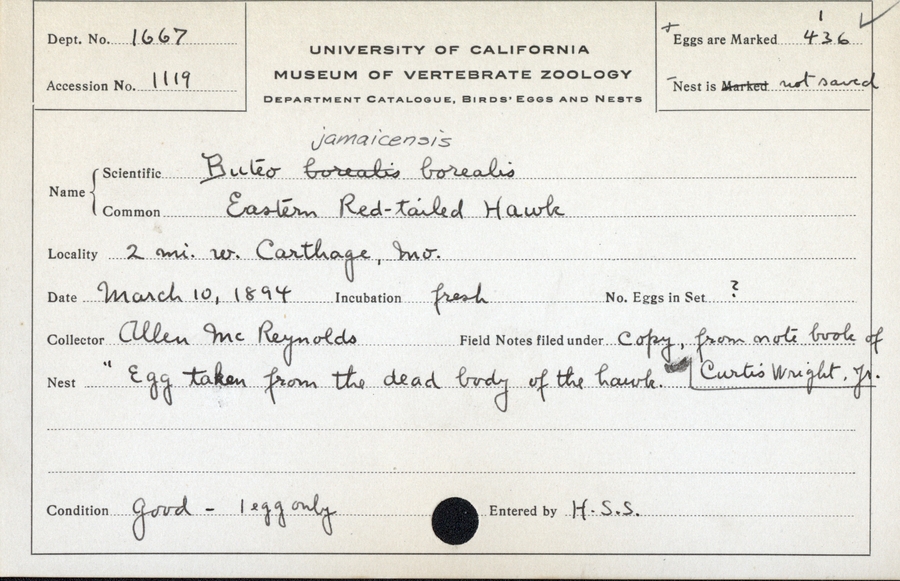 Dept. No. 1667
Accession No. 1119
UNIVERSITY OF CALIFORNIA
MUSEUM OF VERTEBRATE ZOOLOGY
DEPARTMENT CATALOGUE, BIRDS' EGGS AND NESTS
+Eggs are Marked 1/436 ✓
-Nest is Marked not saved
jamaicensis
Name { Scientific Buteo borealis borealis
Common Eastern Red-tailed Hawk
Locality 2 mi. w. Carthage, Mo.
Date March 10, 1894 Incubation fresh No. Eggs in Set ?
Collector Allen McReynolds Field Notes filed under Copy, from note book of
Nest "Egg taken from the dead body of the hawk." Curtis Wright, Jr.
Condition good - 1 egg only Entered by H.S.S.